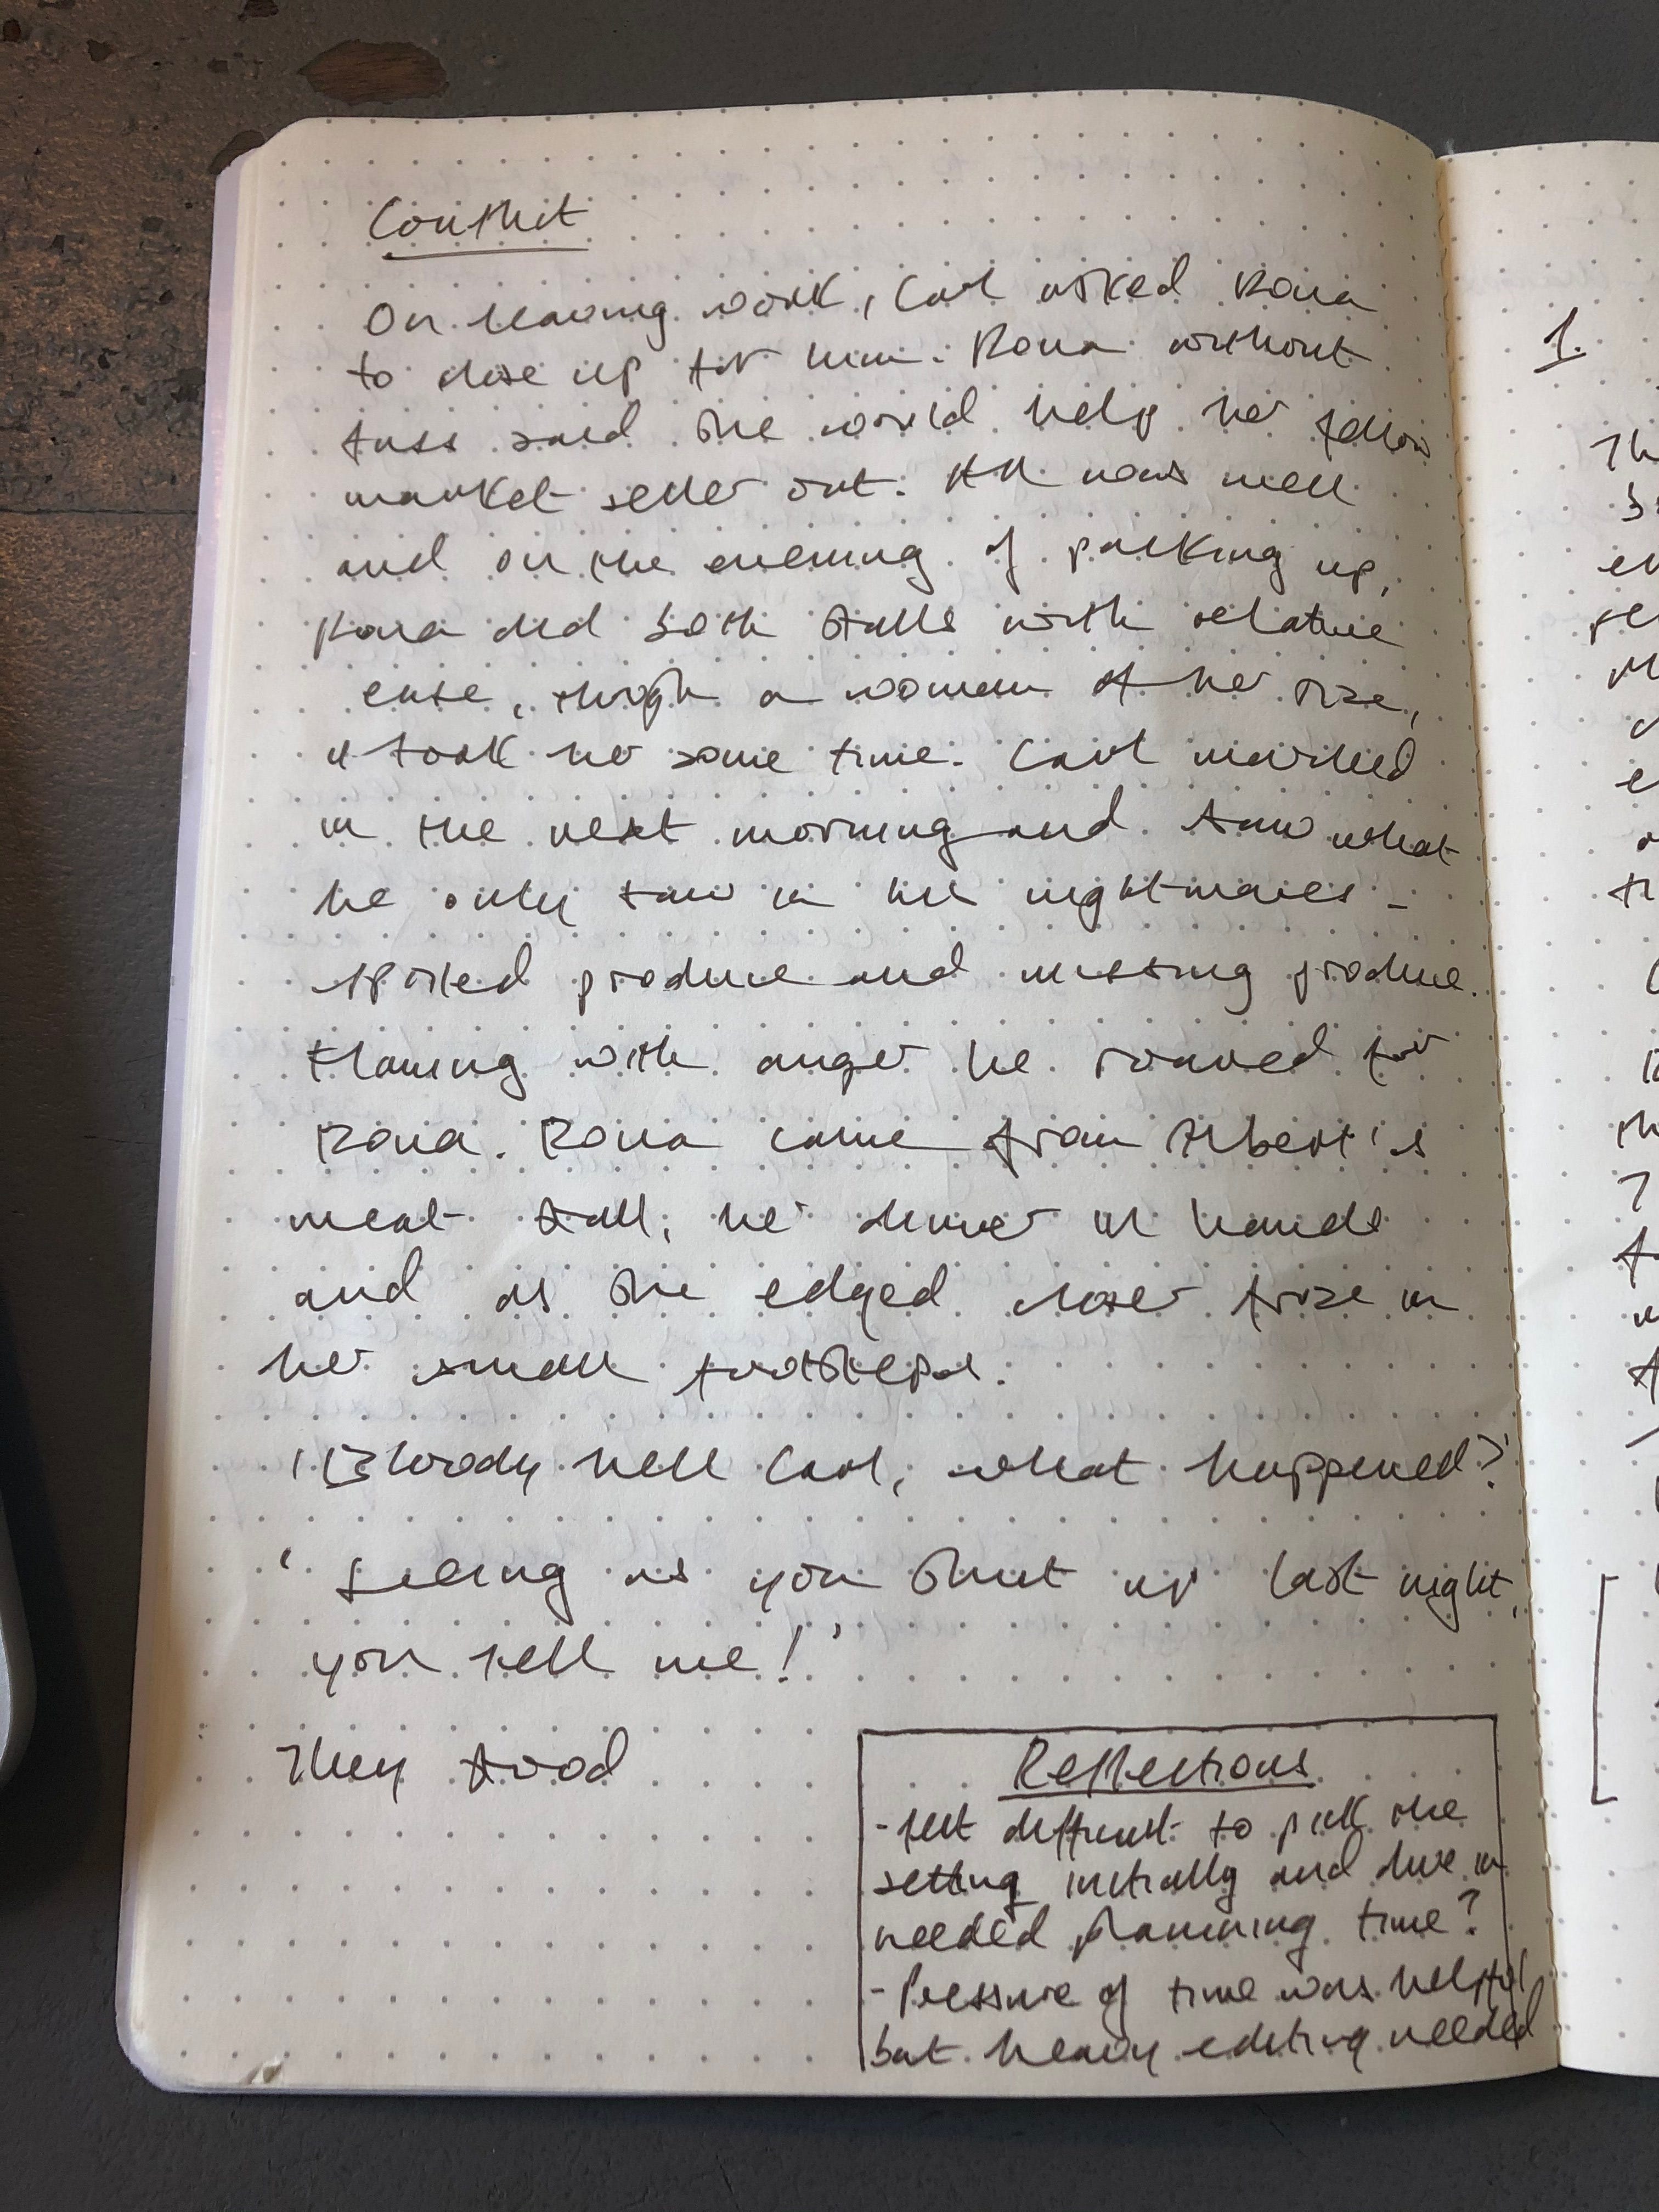 Conflict
On leaving work, Carl asked Rona
to close up for him. Rona without
fuss said she would help her fellow
market seller out. All was well
and on the evening of packing up,
Rona did both stalls with relative
ease, though a woman of her size,
it took her some time. Carl marched
in the next morning and saw what
he only saw in his nightmares -
spoiled produce and missing produce.
Flaming with anger he roared for
Rona. Rona came from Albert's
meat stall, her in hands
and as she edged closer froze in
her small footsteps.
'Bloody hell Carl, what happened?'
'Seeing as you shut up last night,
you tell me!'
They stood
Reflections
- felt difficult to pick the
setting initially and dive in
needed planning time?
- Pressure of time was helpful
but heavy editing needed
1.